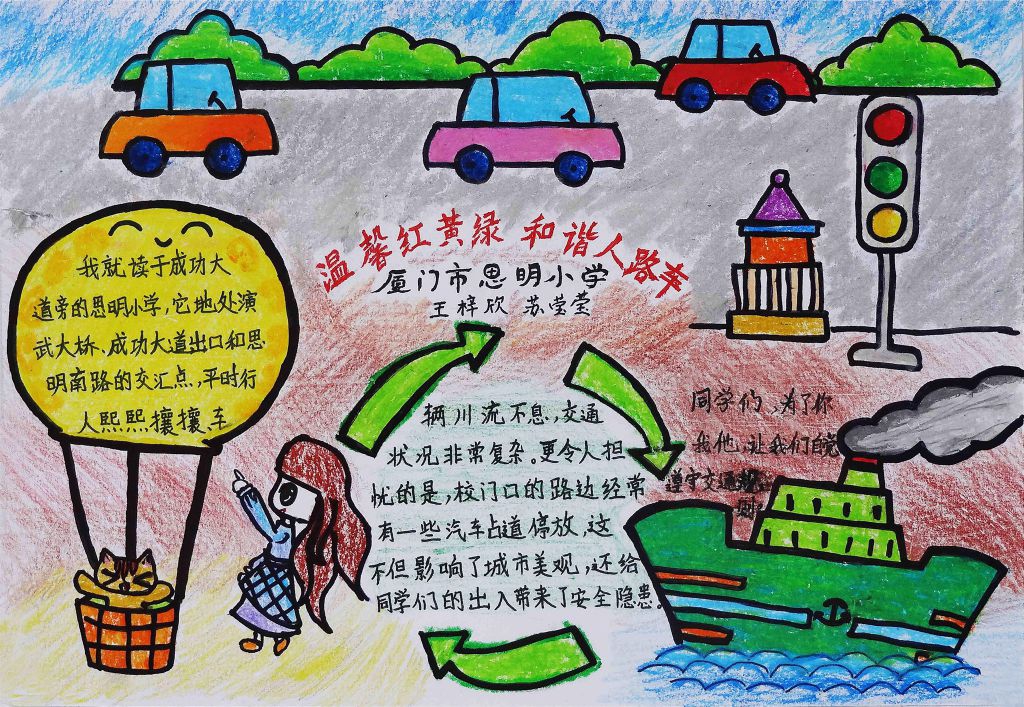 温馨红黄绿 和谐人路车
厦门市思明小学
王梓欣 苏莹莹
我就读于成功大
道旁的思明小学,它地处演
武大桥、成功大道出口和思
明南路的交汇点,平时行
人熙熙攘攘,车
辆川流不息,交通
状况非常复杂。更令人担
忧的是,校门口的路边经常
有一些汽车占道停放,这
不但影响了城市美观,还给
同学们的出入带来了安全隐患。
同学们,为了你
我他,让我们自觉
遵守交通规
则